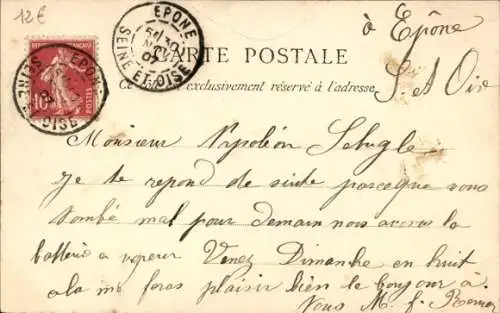 12€
à Epône
EPONE
SEINE ET OISE
CARTE POSTALE
Ce exclusivement réservé à l'adresse
S. et Oise
REPUBLIQUE FRANÇAISE
10
POSTES
EPONE
SEINE OISE
Monsieur Napoléon
Je te repond de suite parceque vous
tombé mal pour demain nous avons la
batterie a vapeur Venez Dimanche en huit
a la me feras plaisir bien le bonjour à
Vous M. f.